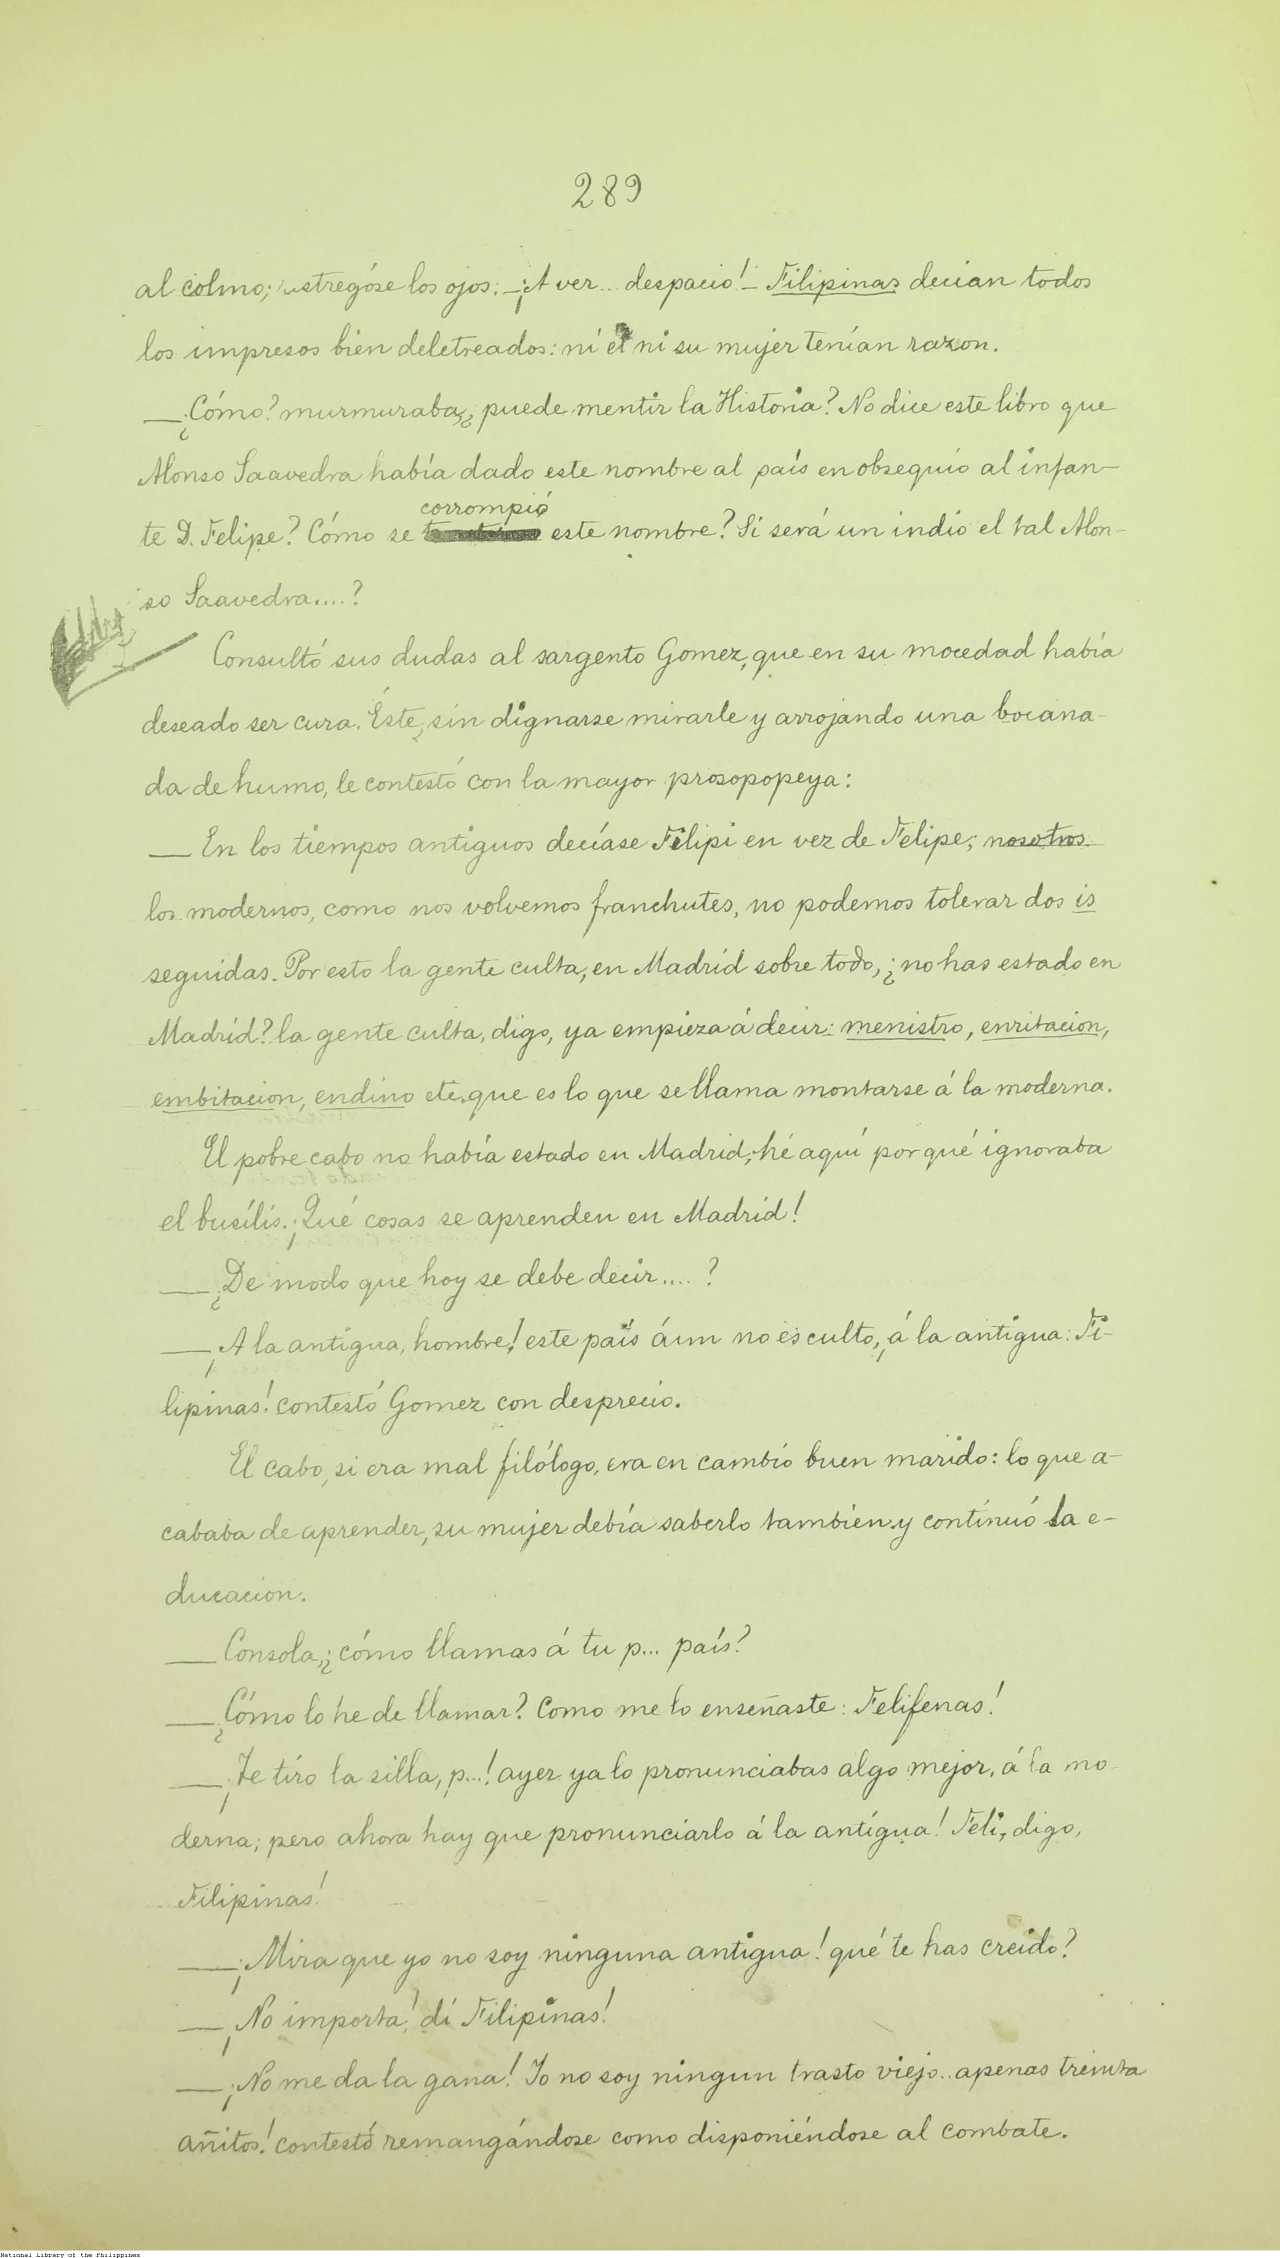 289
al colmo; restregóse los ojos: —¡A ver.. despacio! — Filipinas decian todos
los impresos bien deletreados: ni él ni su mujer tenían razon.
—¿Cómo? murmuraba, ¿puede mentir la Historia? No dice este libro que
Alonso Saavedra había dado este nombre al país en obsequio al infan-
corrompió
te D. Felipe? Cómo se este nombre? Si será un indio el tal Alon-
so Saavedra....?
Consultó sus dudas al sargento Gomez, que en su mocedad había
deseado ser cura. Éste, sin dignarse mirarle y arrojando una bocana-
da de humo, le contestó con la mayor prosopopeya:
— En los tiempos antiguos decíase Filipi en vez de Felipe; nosotros
los modernos, como nos volvemos franchutes, no podemos tolerar dos is
seguidas. Por esto la gente culta, en Madrid sobre todo, ¿no has estado en
Madrid? la gente culta, digo, ya empieza á decir: menistro, enritacion,
embitacion, endino etc. que es lo que se llama montarse á la moderna.
El pobre cabo no había estado en Madrid; hé aquí por qué ignoraba
el busílis. ¡Qué cosas se aprenden en Madrid!
—¿De modo que hoy se debe decir....?
—¡A la antigua, hombre! este país áun no es culto, ¡á la antigua: Fi-
lipinas! contestó Gomez con desprecio.
El cabo, si era mal filólogo, era en cambio buen marido: lo que a-
cababa de aprender, su mujer debía saberlo tambien y continuó la e-
ducacion.
— Consola, ¿cómo llamas á tu p... país?
—¿Cómo lo he de llamar? Como me lo enseñaste: Felifenas!
—¡Te tiro la silla, p...! ayer ya lo pronunciabas algo mejor, á la mo-
derna; pero ahora hay que pronunciarlo á la antigua! Feli, digo,
Filipinas!
—¡Mira que yo no soy ninguna antigua! qué te has creido?
—¡No importa! dí Filipinas!
—¡No me da la gana! Yo no soy ningun trasto viejo.. apenas treinta
añitos! contestó remangándose como disponiéndose al combate.
National Library of the Philippines